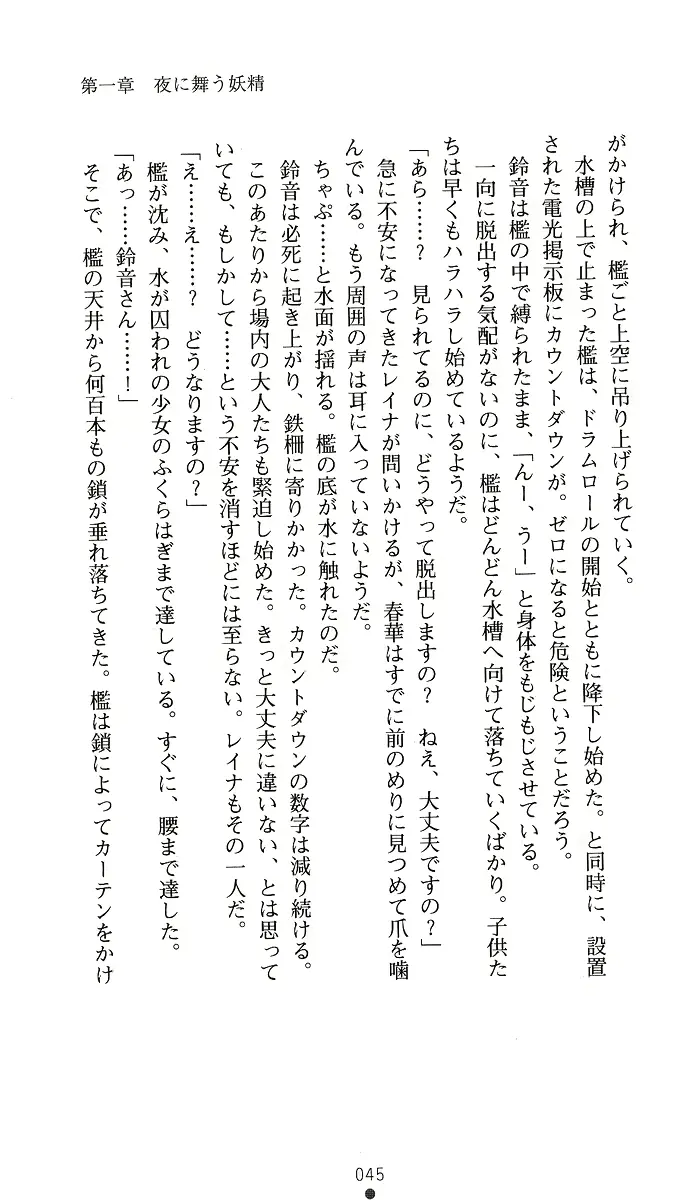 第一章　夜に舞う妖精
がかけられ、檻ごと上空に吊り上げられていく。
　水槽の上で止まった檻は、ドラムロールの開始とともに降下し始めた。と同時に、設置
された電光掲示板にカウントダウンが。ゼロになると危険ということだろう。
　鈴音は檻の中で縛られたまま、「んー、うー」と身体をもじもじさせている。
　一向に脱出する気配がないのに、檻はどんどん水槽へ向けて落ちていくばかり。子供た
ちは早くもハラハラし始めているようだ。
「あら……？　見られてるのに、どうやって脱出しますの？　ねえ、大丈夫ですの？」
　急に不安になってきたレイナが問いかけるが、春華はすでに前のめりに見つめて爪を噛
んでいる。もう周囲の声は耳に入っていないようだ。
　ちゃぷ……と水面が揺れる。檻の底が水に触れたのだ。
　鈴音は必死に起き上がり、鉄柵に寄りかかった。カウントダウンの数字は減り続ける。
　このあたりから場内の大人たちも緊迫し始めた。きっと大丈夫に違いない、とは思って
いても、もしかして……という不安を消すほどには至らない。レイナもその一人だ。
「え……え……？　どうなりますの？」
　檻が沈み、水が囚われの少女のふくらはぎまで達している。すぐに、腰まで達した。
「あっ……鈴音さん……！」
　そこで、檻の天井から何百本もの鎖が垂れ落ちてきた。檻は鎖によってカーテンをかけ
045